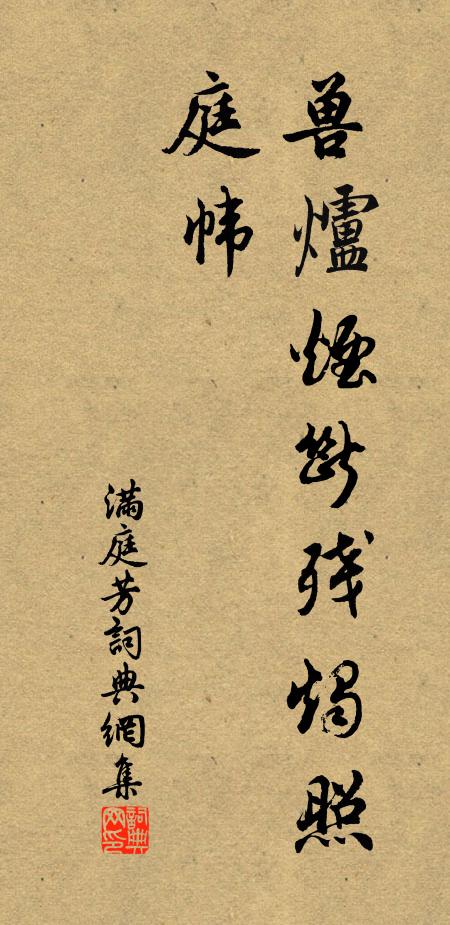 兽爐煙断残燭照
庭帏
滿庭芳詞典網集
詞典
网印